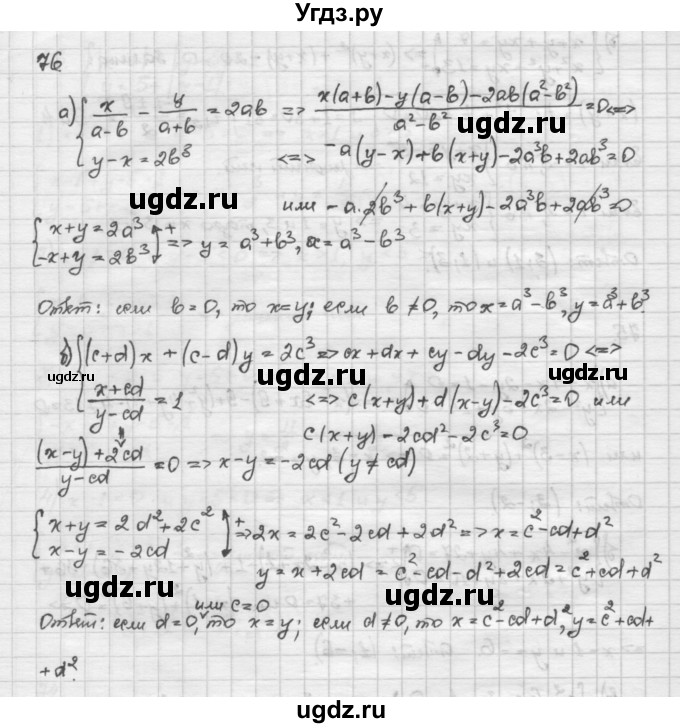 Угдз.ру
76
а) { x/(a-b) - y/(a+b) = 2ab => (x(a+b)-y(a-b)-2ab(a²-b²))/(a²-b²) = 0 <=>
y-x = 2b³ <=> -a(y-x)+b(x+y)-2a³b+2ab³=0
ugdz.ru
ugdz.ru
или -a·2b³+b(x+y)-2a³b+2ab³=0
{ x+y=2a³
-x+y=2b³ + => y=a³+b³, x=a³-b³
ugdz.ru
Ответ: если b=0, то x=y; если b≠0, то x=a³-b³, y=a³+b³.
б) { (c+d)x+(c-d)y=2c³ => cx+dx+cy-dy-2c³=0 <=>
ugdz.ru
ugdz.ru
ugdz.ru
(x+cd)/(y-cd) = 1 <=> c(x+y)+d(x-y)-2c³=0 или
c(x+y)-2cd²-2c³=0
((x-y)+2cd)/(y-cd) = 0 => x-y=-2cd (y≠cd)
ugdz.ru
{ x+y=2d²+2c²
x-y=-2cd + => 2x=2c²-2cd+2d² => x=c²-cd+d²
y=x+2cd=c²-cd-d²+2cd=c²+cd+d²
ugdz.ru
ugdz.ru
или c=0
Ответ: если d=0, то x=y; если d≠0, то x=c²-cd+d², y=c²+cd+
+d².
ugdz.ru